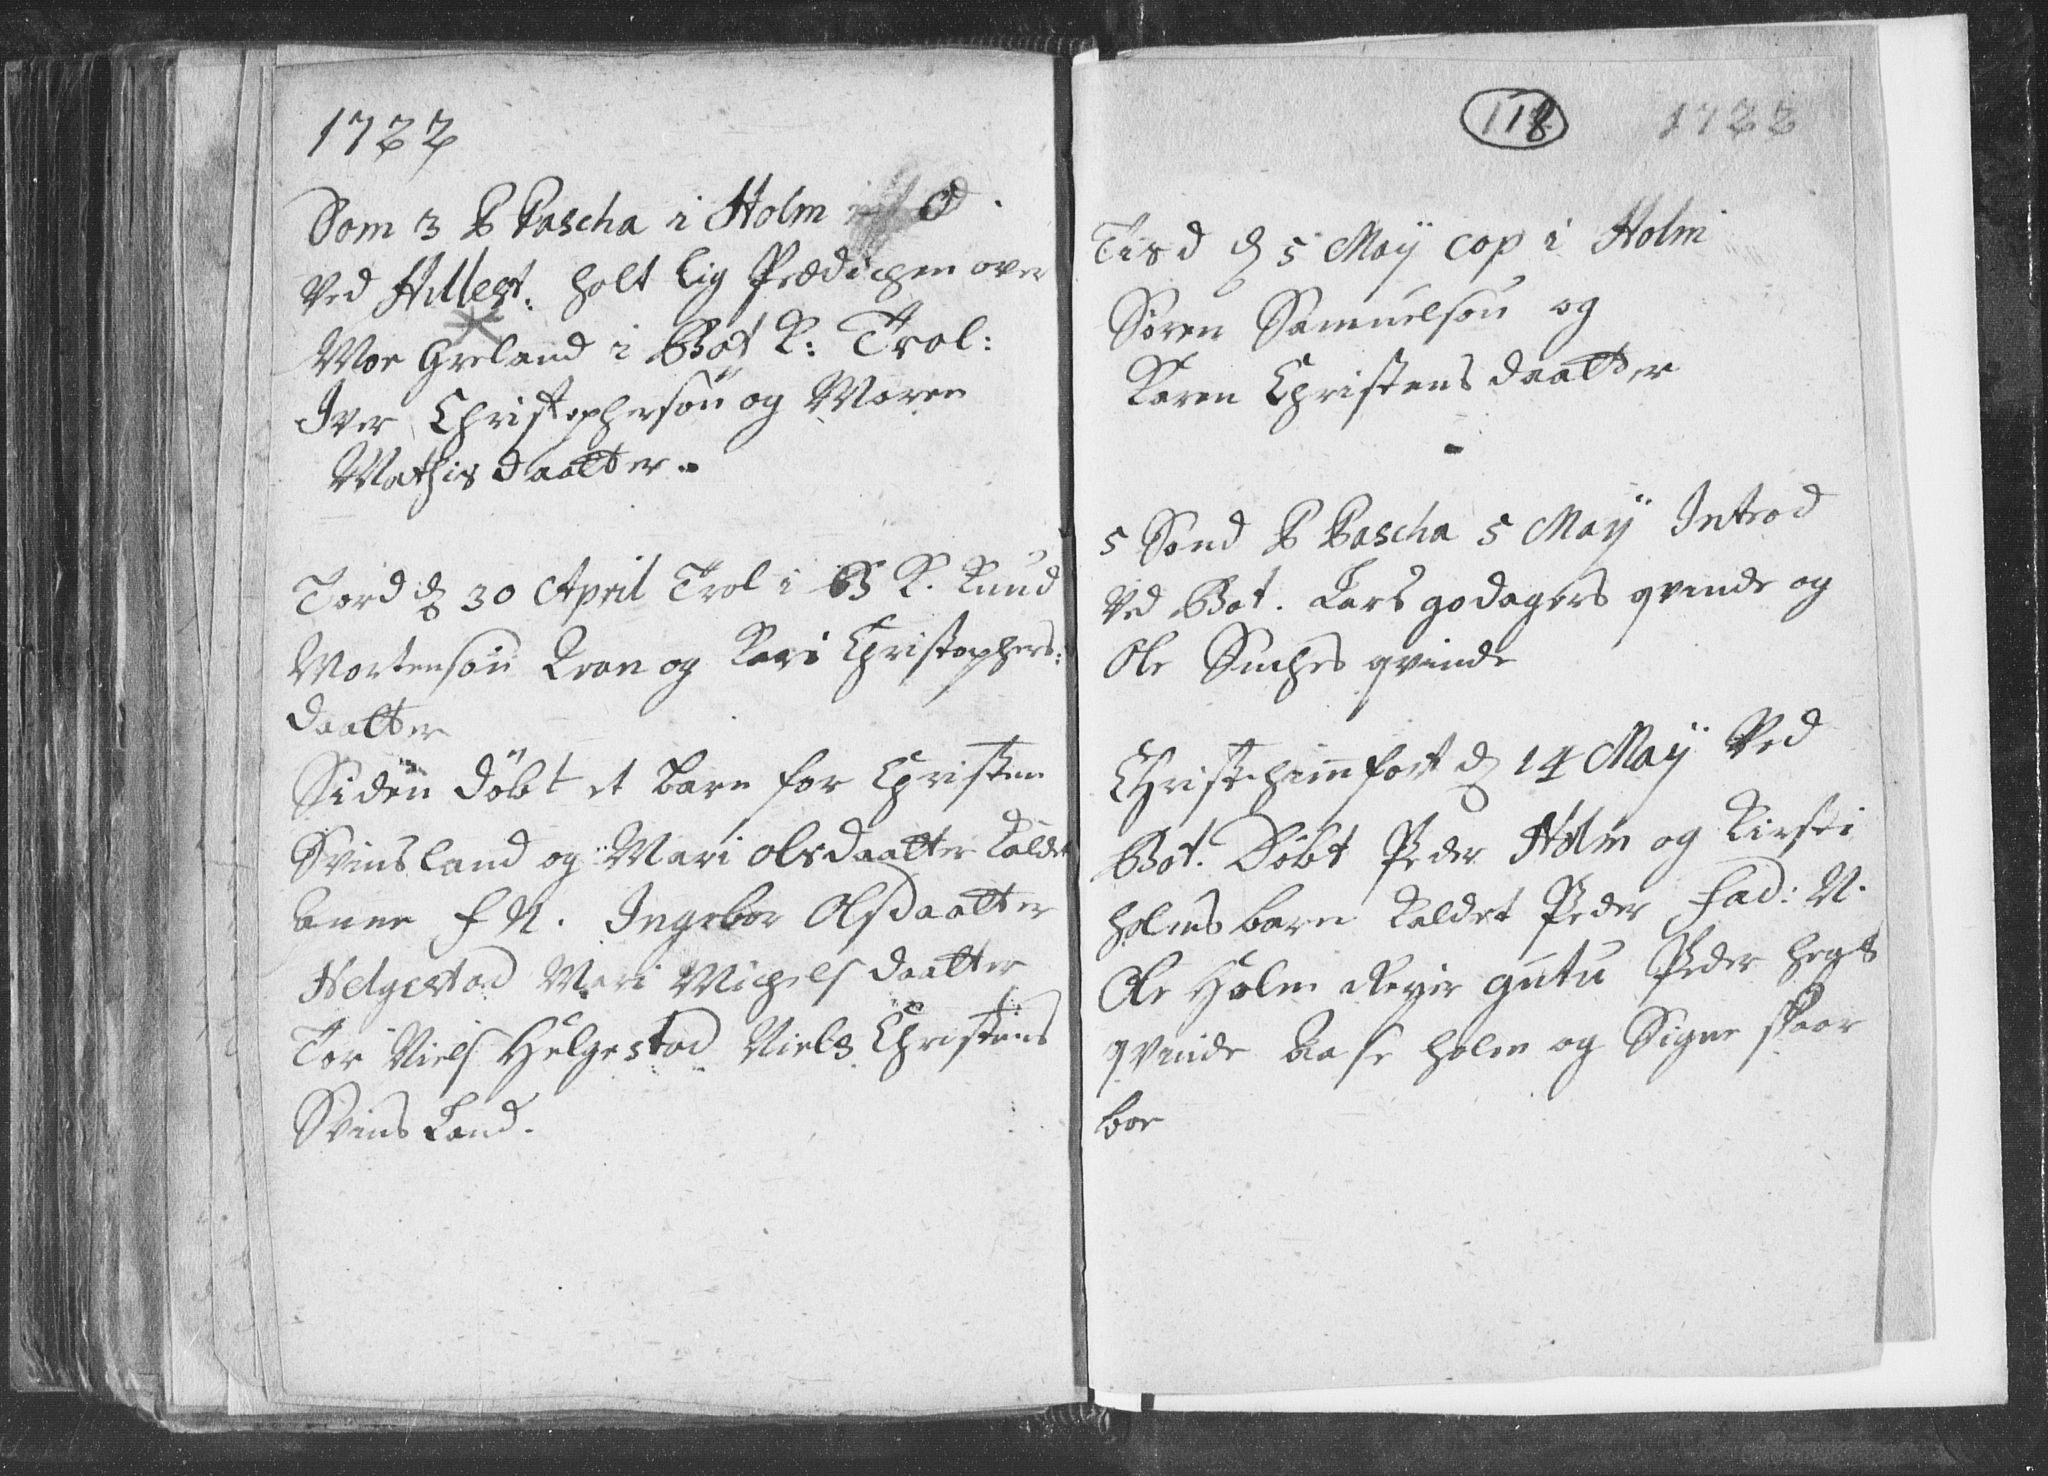 1722
Dom 3 P Pascha i Holm
Ved Hillest. holt Lig Prædichen over
Moe Greland i Bot K: Trol:
Iver Christophersøn og Maren
Mathisdaatter.
Torsd d 30 April Trol i B K. Knud
Mortensøn Kron og Kari Christophers:
daatter
Siden døbt et barn for Christen
Svinsland og Mari olsdaatter kaldet
Anne F N. Ingebor Olsdaatter
Helgestad Mari Michelsdaatter
Tor Niels Helgestad Niels Christens
Svinsland.
118 1722
Tisd d 5 Maij cop i Holm
Søren Samuelsøn og
Karen Christensdaatter
5 Sønd P Pascha 5 Maij Introd
Ved Bot. Lars godagers qvinde og
Ole Suches qvinde
Christi himmfart d 14 Maij Ved
Bot. Døbt Peder Holm og Kirsti
holms barn kaldet Peder Fad: N.
Ole Holm Reyer gutu Peder hegs
qvinde Aase holm og Signe skaar
bor